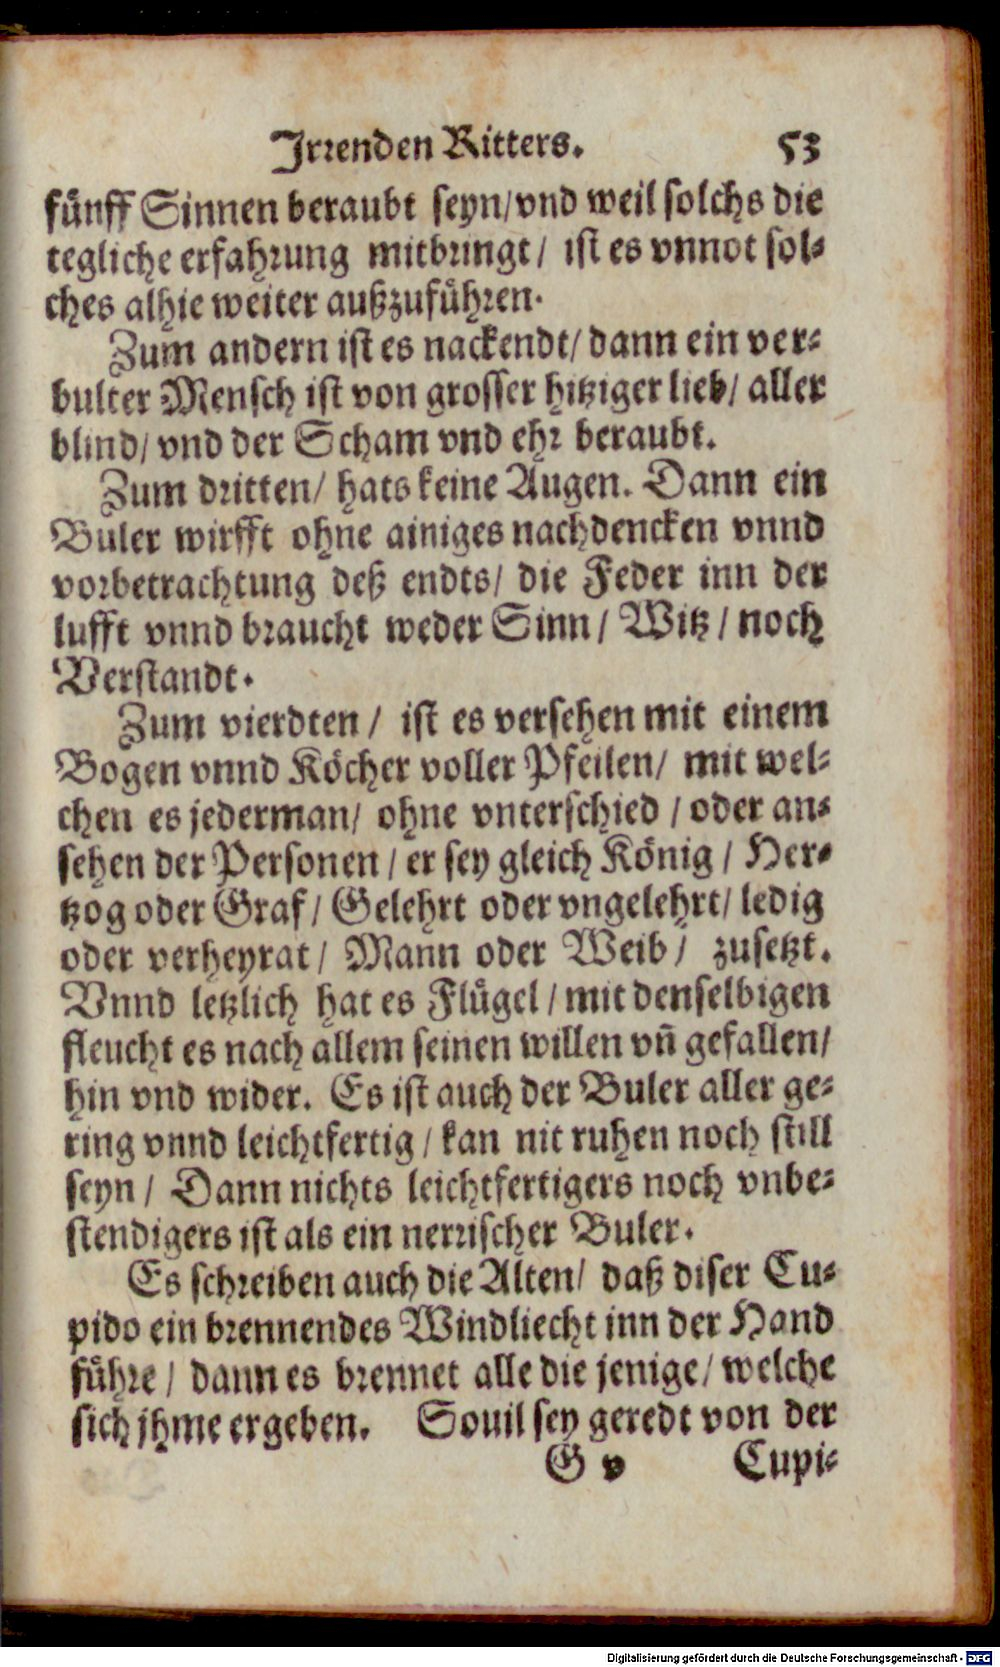 Irrenden Ritters. 53
fünff Sinnen beraubt seyn/vnd weil solchs die
tegliche erfahrung mitbringt / ist es vnnot sol-
ches alhie weiter außzuführen.
Zum andern ist es nackendt/ dann ein ver-
bulter Mensch ist von grosser hitziger lieb/ aller
blind/ vnd der Scham vnd ehr beraubt.
Zum dritten/ hats keine Augen. Dann ein
Buler wirfft ohne ainiges nachdencken vnnd
vorbetrachtung deß endts/ die Feder inn der
lufft vnnd braucht weder Sinn / Witz / noch
Verstandt.
Zum vierdten / ist es versehen mit einem
Bogen vnnd Köcher voller Pfeilen/ mit wel-
chen es jederman/ ohne vnterschied / oder an-
sehen der Personen / er sey gleich König / Her-
tzog oder Graf / Gelehrt oder vngelehrt/ ledig
oder verheyrat / Mann oder Weib / zusetzt.
Vnnd letzlich hat es Flügel / mit denselbigen
fleucht es nach allem seinen willen vñ gefallen/
hin vnd wider. Es ist auch der Buler aller ge-
ring vnnd leichtfertig / kan nit ruhen noch still
seyn / Dann nichts leichtfertigers noch vnbe-
stendigers ist als ein nerrischer Buler.
Es schreiben auch die Alten/ daß diser Cu-
pido ein brennendes Windliecht inn der Hand
führe / dann es brennet alle die jenige / welche
sich jhme ergeben. Souil sey geredt von der
G v Cupi-
Digitalisierung gefördert durch die Deutsche Forschungsgemeinschaft - DFG